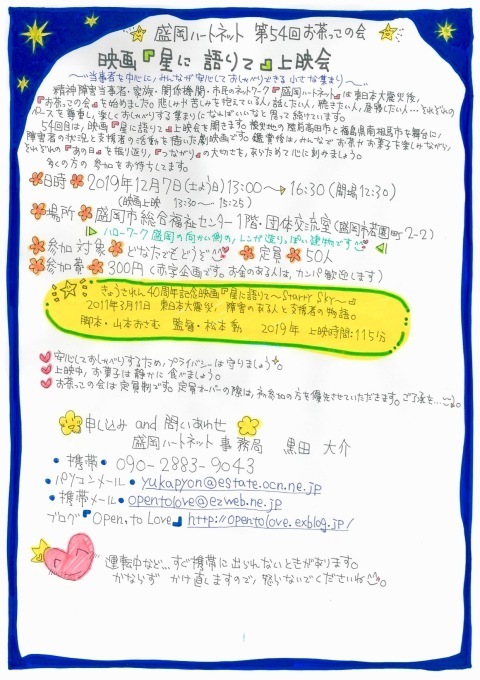 盛岡ハートネット 第54回お茶っこの会
映画『星に語りて』上映会
～当事者を中心に、みんなが安心しておしゃべりできる小さな集まり～
精神障害当事者・家族・関係機関・市民のネットワーク『盛岡ハートネット』は東日本大震災後、
『お茶っこの会』を始めました。悲しみや苦しみを抱えている人、話したい人、聴きたい人、居眠したい人…それぞれの
ペースを尊重し、楽しくおしゃべりする集まりになればいいなと思って続けています。
54回目は、映画『星に語りて』上映会を開きます。被災地の陸前高田市と福島県南相馬市を舞台に、
障害者の状況と支援者の活動を描いた劇映画です。鑑賞後は、みんなでお茶やお菓子を楽しみながら、
それぞれの『あの日』を振り返り、『つながり』の大切さを、あらためて心に刻みましょう。
多くの方の参加をお待ちしてます。
日時 2019年12月7日(土よう日)13:00～→16:30(開場12:30)
(映画上映 13:30～15:25)
場所 盛岡市総合福祉センター1階・団体交流室(盛岡市若園町2-2)
ハローワーク盛岡の向かい側の、レンガ造りっぽい建物です
参加対象 どなたでもどうぞ 定員 50人
参加費 300円(赤字企画です。お金のある人は、カンパ歓迎します)
きょうされん40周年記念映画『星に語りて～Starry Sky～』
2011年3月11日 東日本大震災。障害のある人と支援者の物語。
脚本・山本おさむ 監督・松本動 2019年 上映時間:115分
安心しておしゃべりするため、プライバシーは守りましょう。
上映中、お菓子は静かに食べましょう。
お茶っこの会は定員制です。定員オーバーの際は、初参加の方を優先させていただきます。ご了承を…。
申し込み and 問いあわせ
盛岡ハートネット事務局 黒田 大介
・携帯・090-2883-9043
・パソコンメール・yukapyon@estate.ocn.ne.jp
・携帯メール・opentolove@ezweb.ne.jp
ブログ『Open,to Love』http://opentolove.exblog.jp/
運転中など…すぐ携帯に出られないときがあります。
かならず かけ直しますので、怒らないでくださいね。